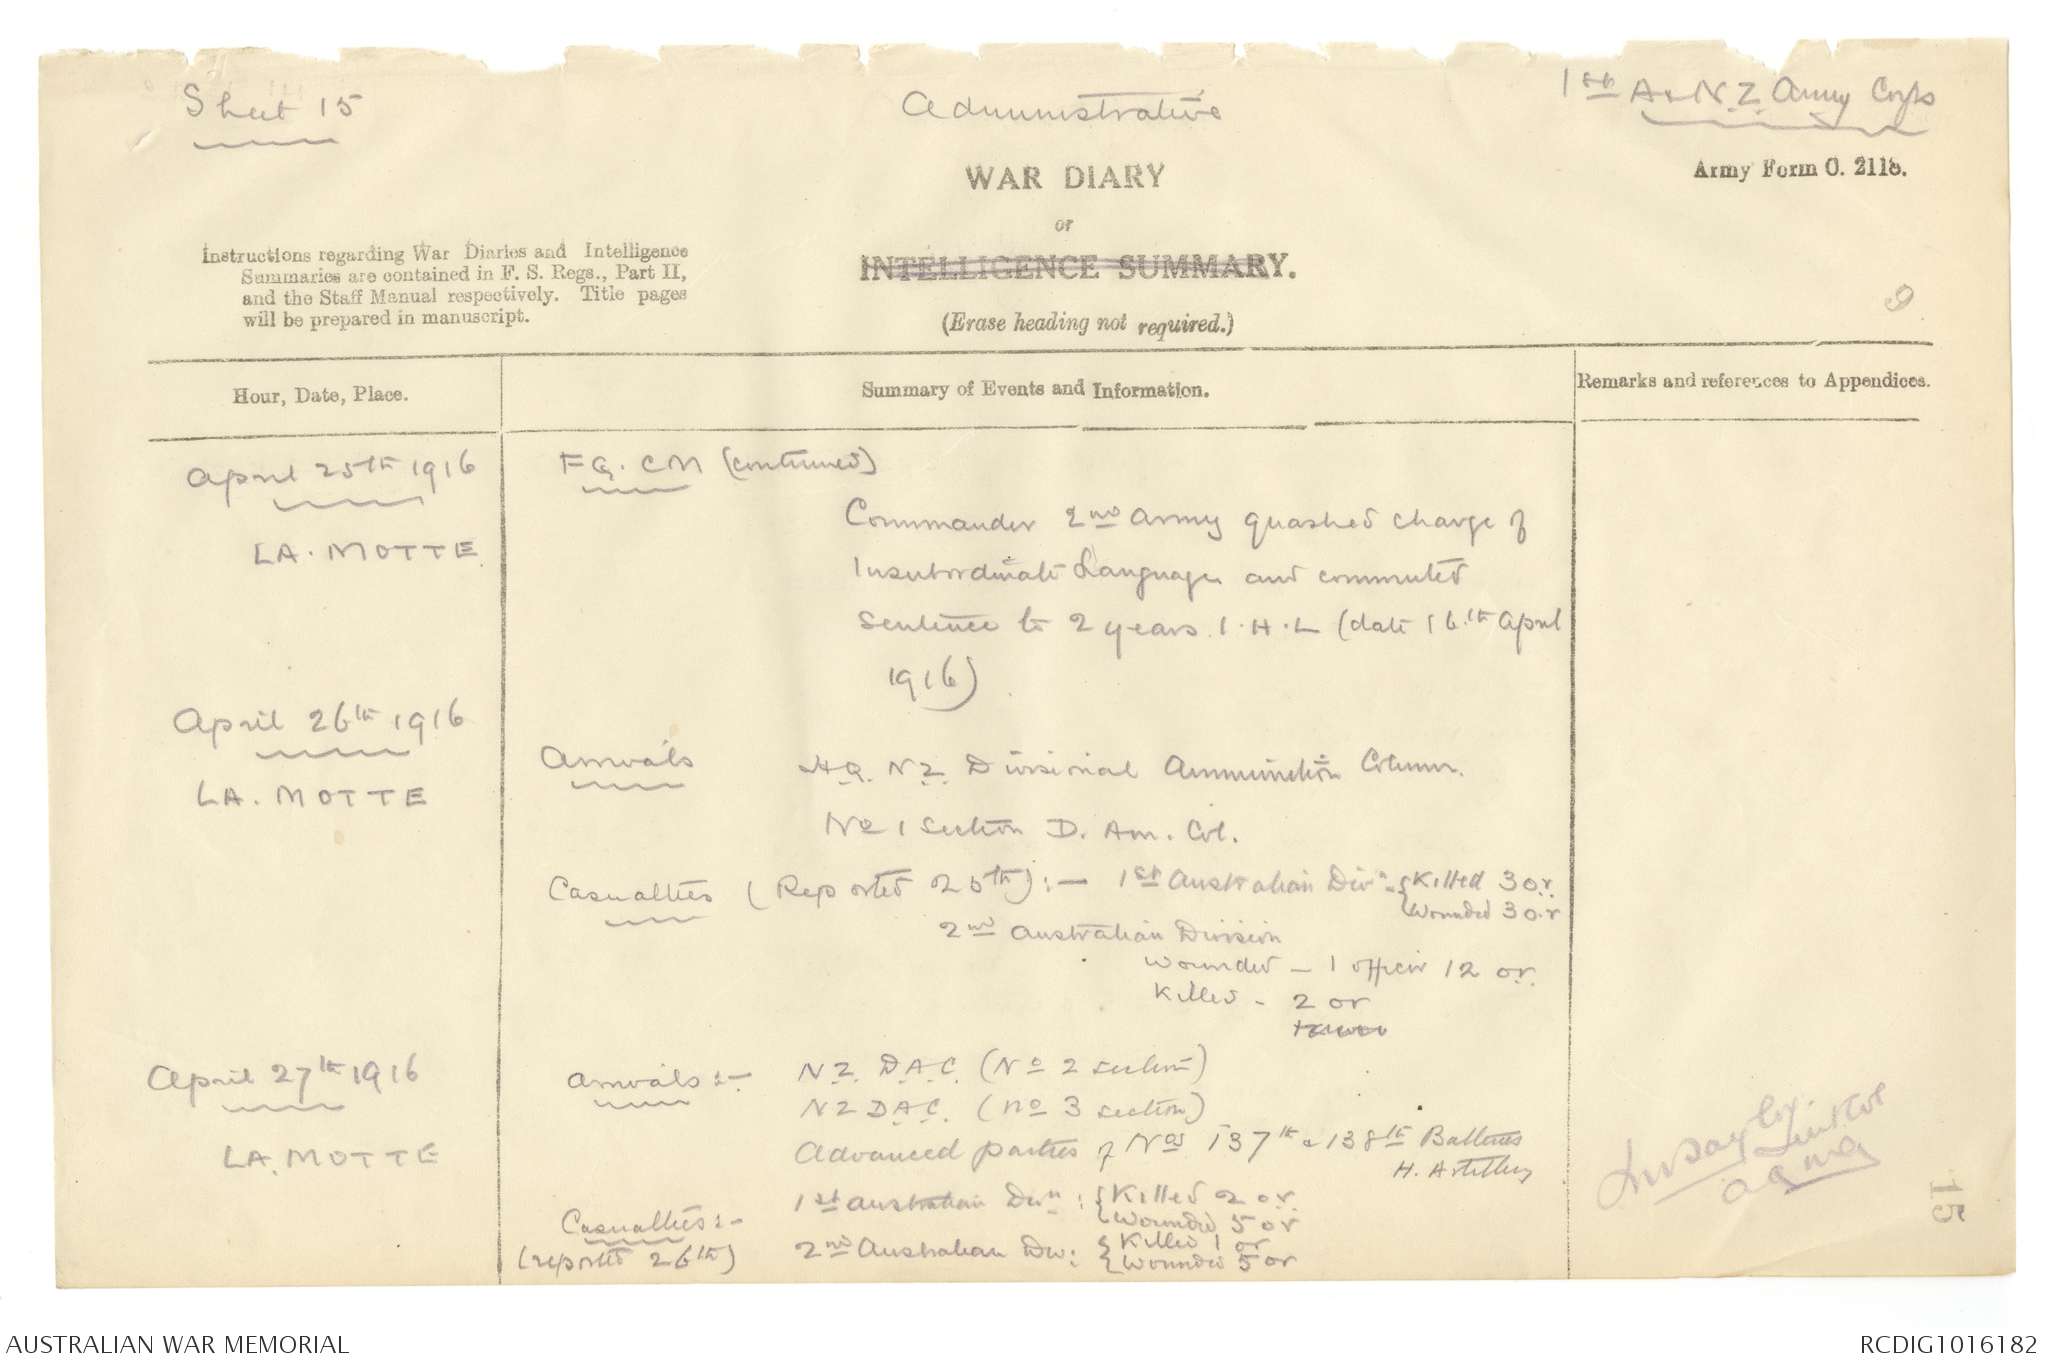 Sheet 15
Administrative
1st A & N.Z. Army Corps
WAR DIARY
or
INTELLIGENCE SUMMARY.
(Erase heading not required.)
Army Form C. 2118.
Instructions regarding War Diaries and Intelligence
Summaries are contained in F. S. Regs., Part II,
and the Staff Manual respectively. Title pages
will be prepared in manuscript.
9
Hour, Date, Place.
Summary of Events and Information.
Remarks and references to Appendices.
April 25th 1916
LA. MOTTE
F.G. CM (continued)
Commander 2nd Army quashed charge of
Insubordinate Language and commuted
sentence to 2 years I.H.L (date 16th April
1916)
April 26th 1916
LA. MOTTE
Arrivals
H.Q. N.Z. Divisional Ammunition Column.
No 1 Section D. Am. Col.
Casualties (Reported 25th):- 1st Australian Divn. {Killed 3 o.r.
{Wounded 3 o.r
2nd Australian Division
Wounded - 1 officer 12 o.r.
Killed - 2 or
April 27th 1916
LA. MOTTE
Arrivals:- N.Z. D.A.C. (No 2 section)
NZ D.A.C. (No 3 section)
Advanced parties of Nos 137th & 138th Batteries
H. Artillery
Casualties:-
(reported 26th)
1st Australian Divn: {Killed 2 o.r.
{Wounded 5 or
2nd Australian Div: {Killed 1 or
{Wounded 5 or
15
AUSTRALIAN WAR MEMORIAL
RCDIG1016182